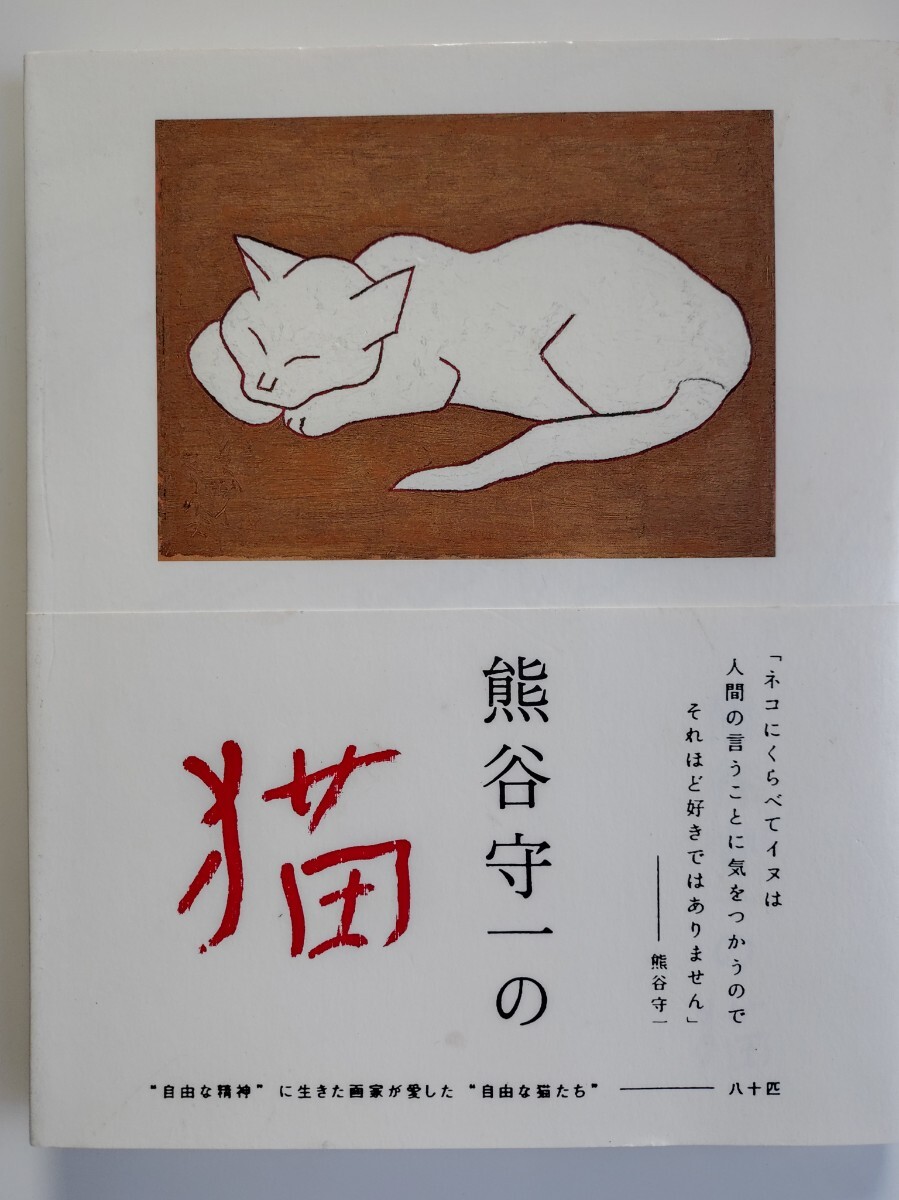 「ネコにくらべてイヌは
人間の言うことに気をつかうので
それほど好きではありません」
――熊谷守一
熊谷守一の
猫
“自由な精神” に生きた画家が愛した “自由な猫たち” ―― 八十匹